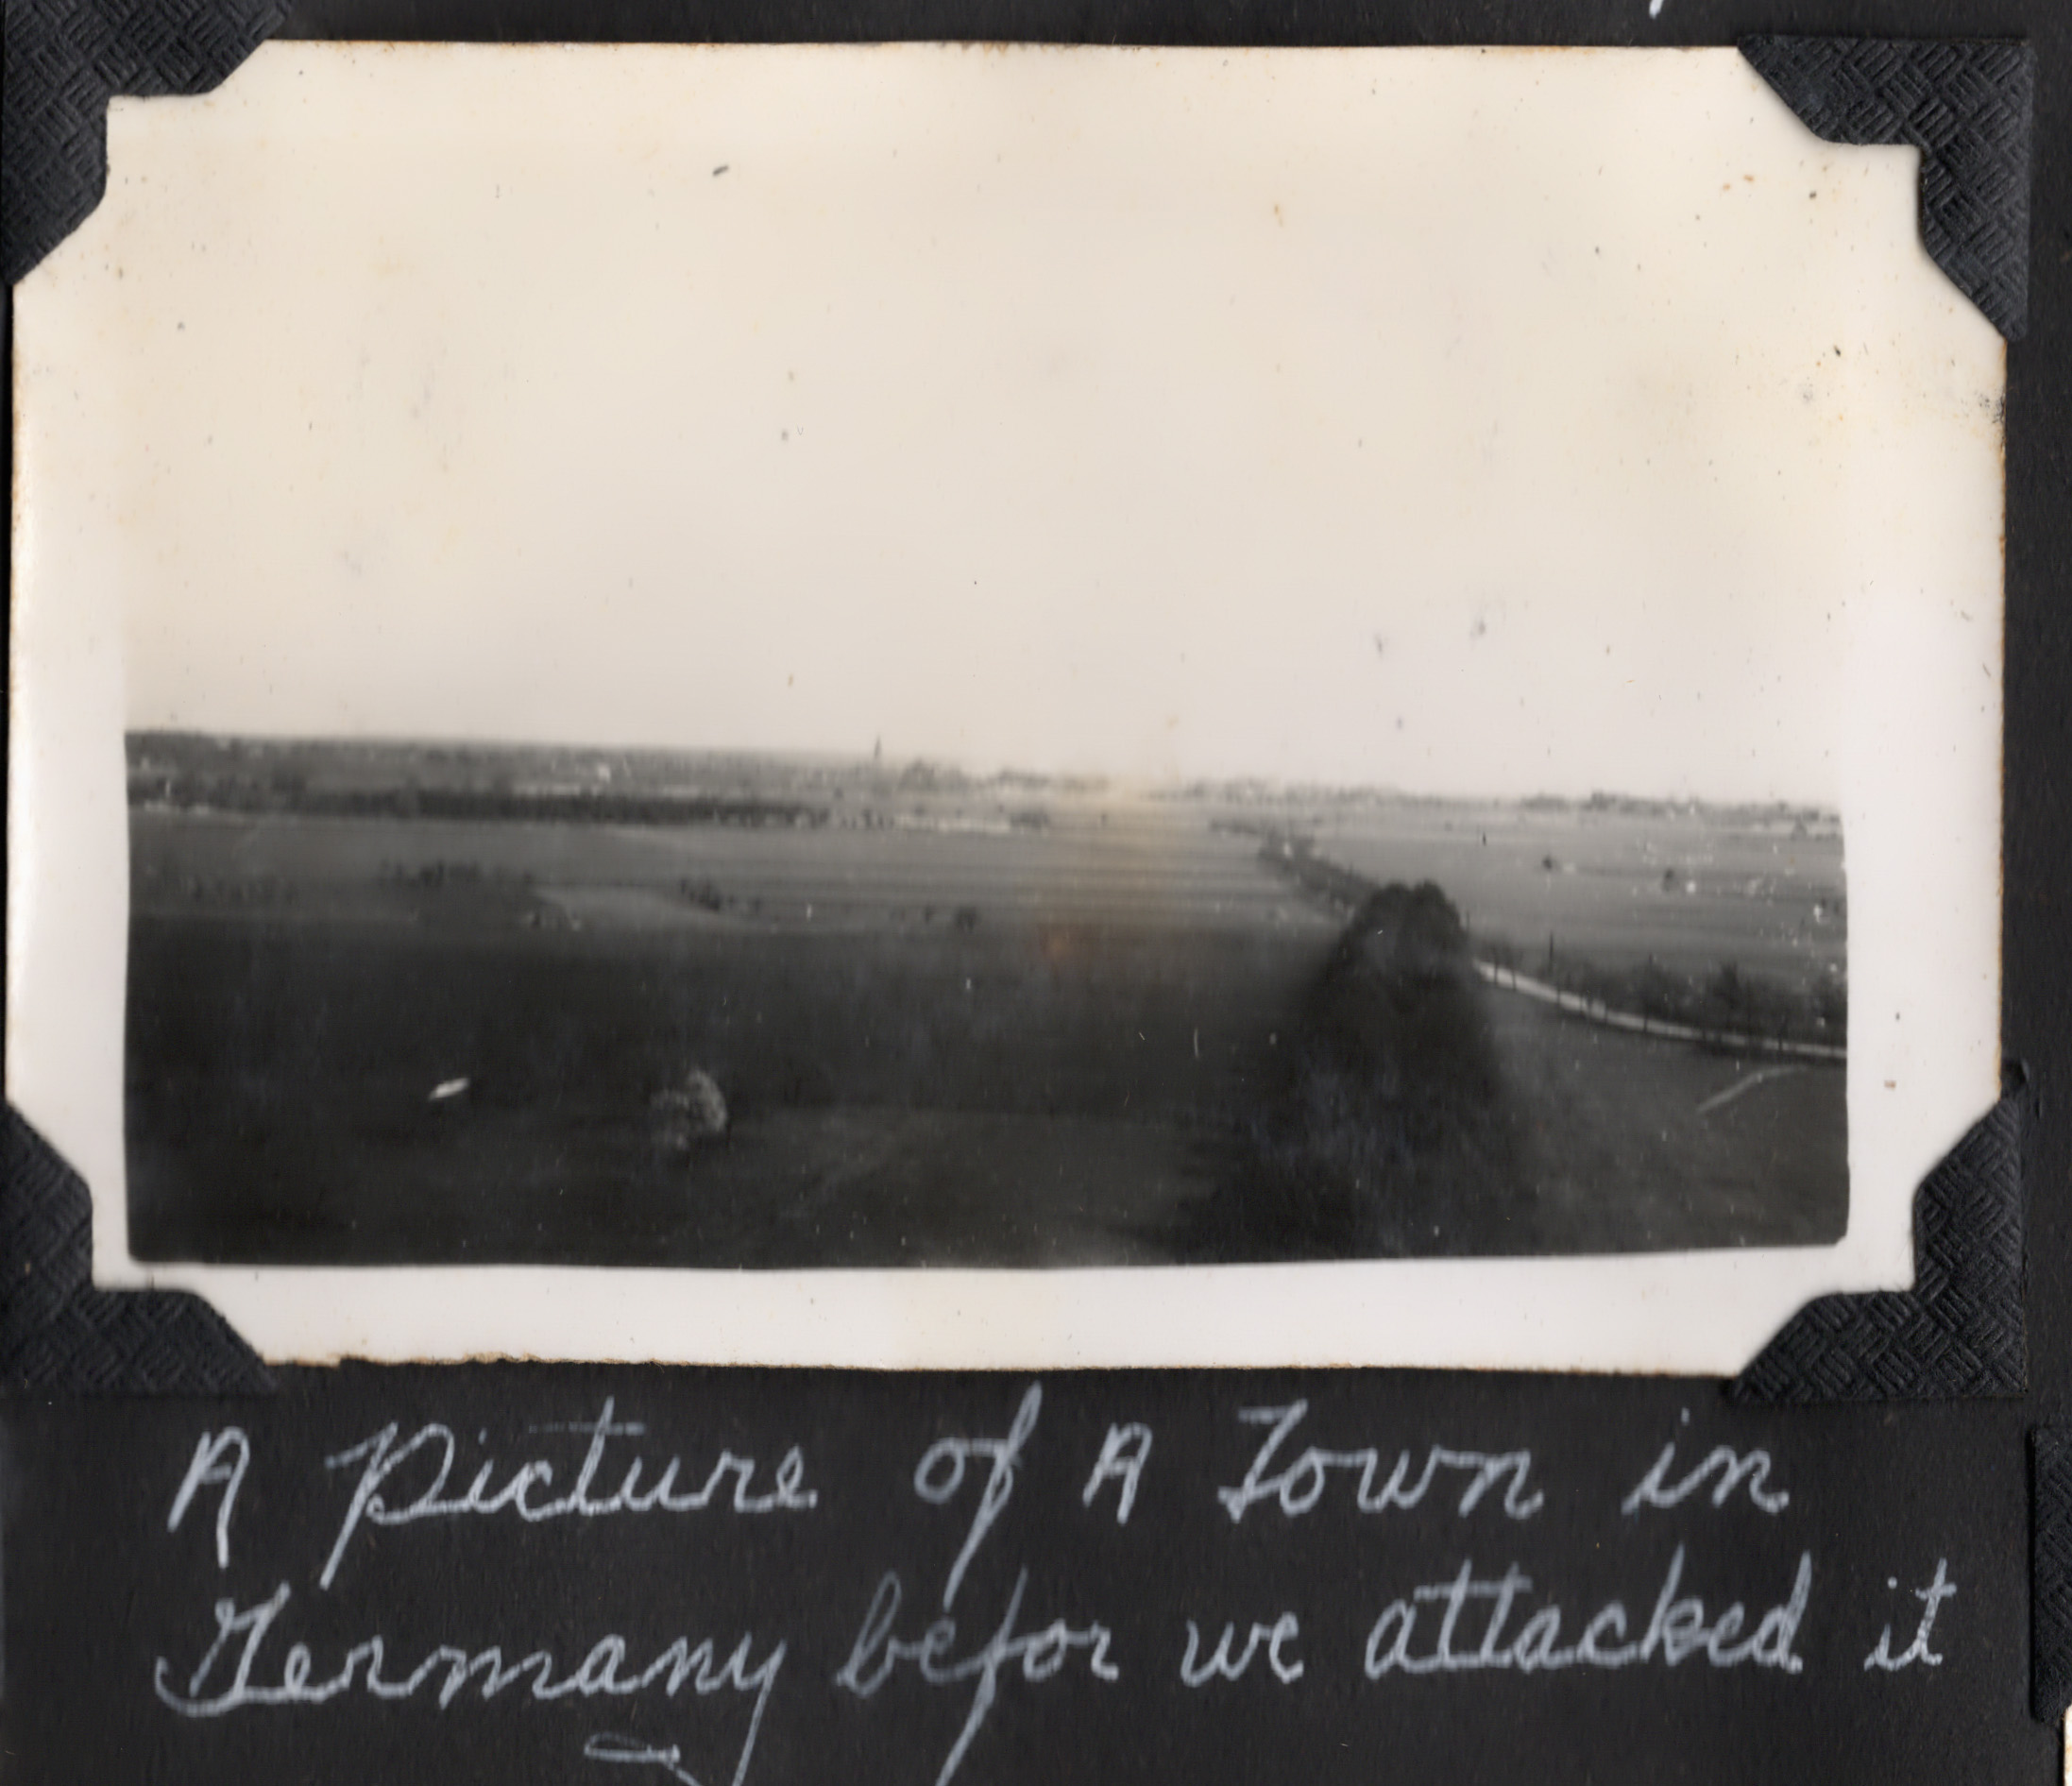 A picture of A Town in
Germany befor we attacked it